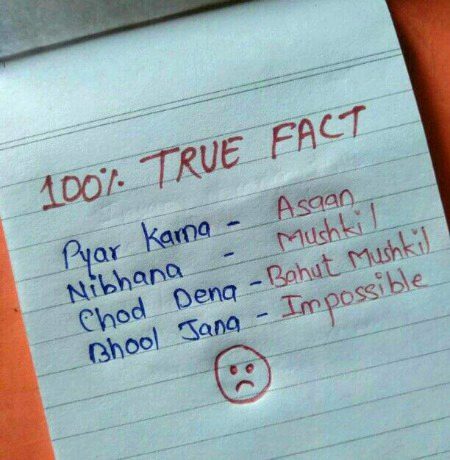 100% TRUE FACT
Pyar Karna - Asaan
Nibhana - Mushkil
Chod Dena - Bahut Mushkil
Bhool Jana - Impossible